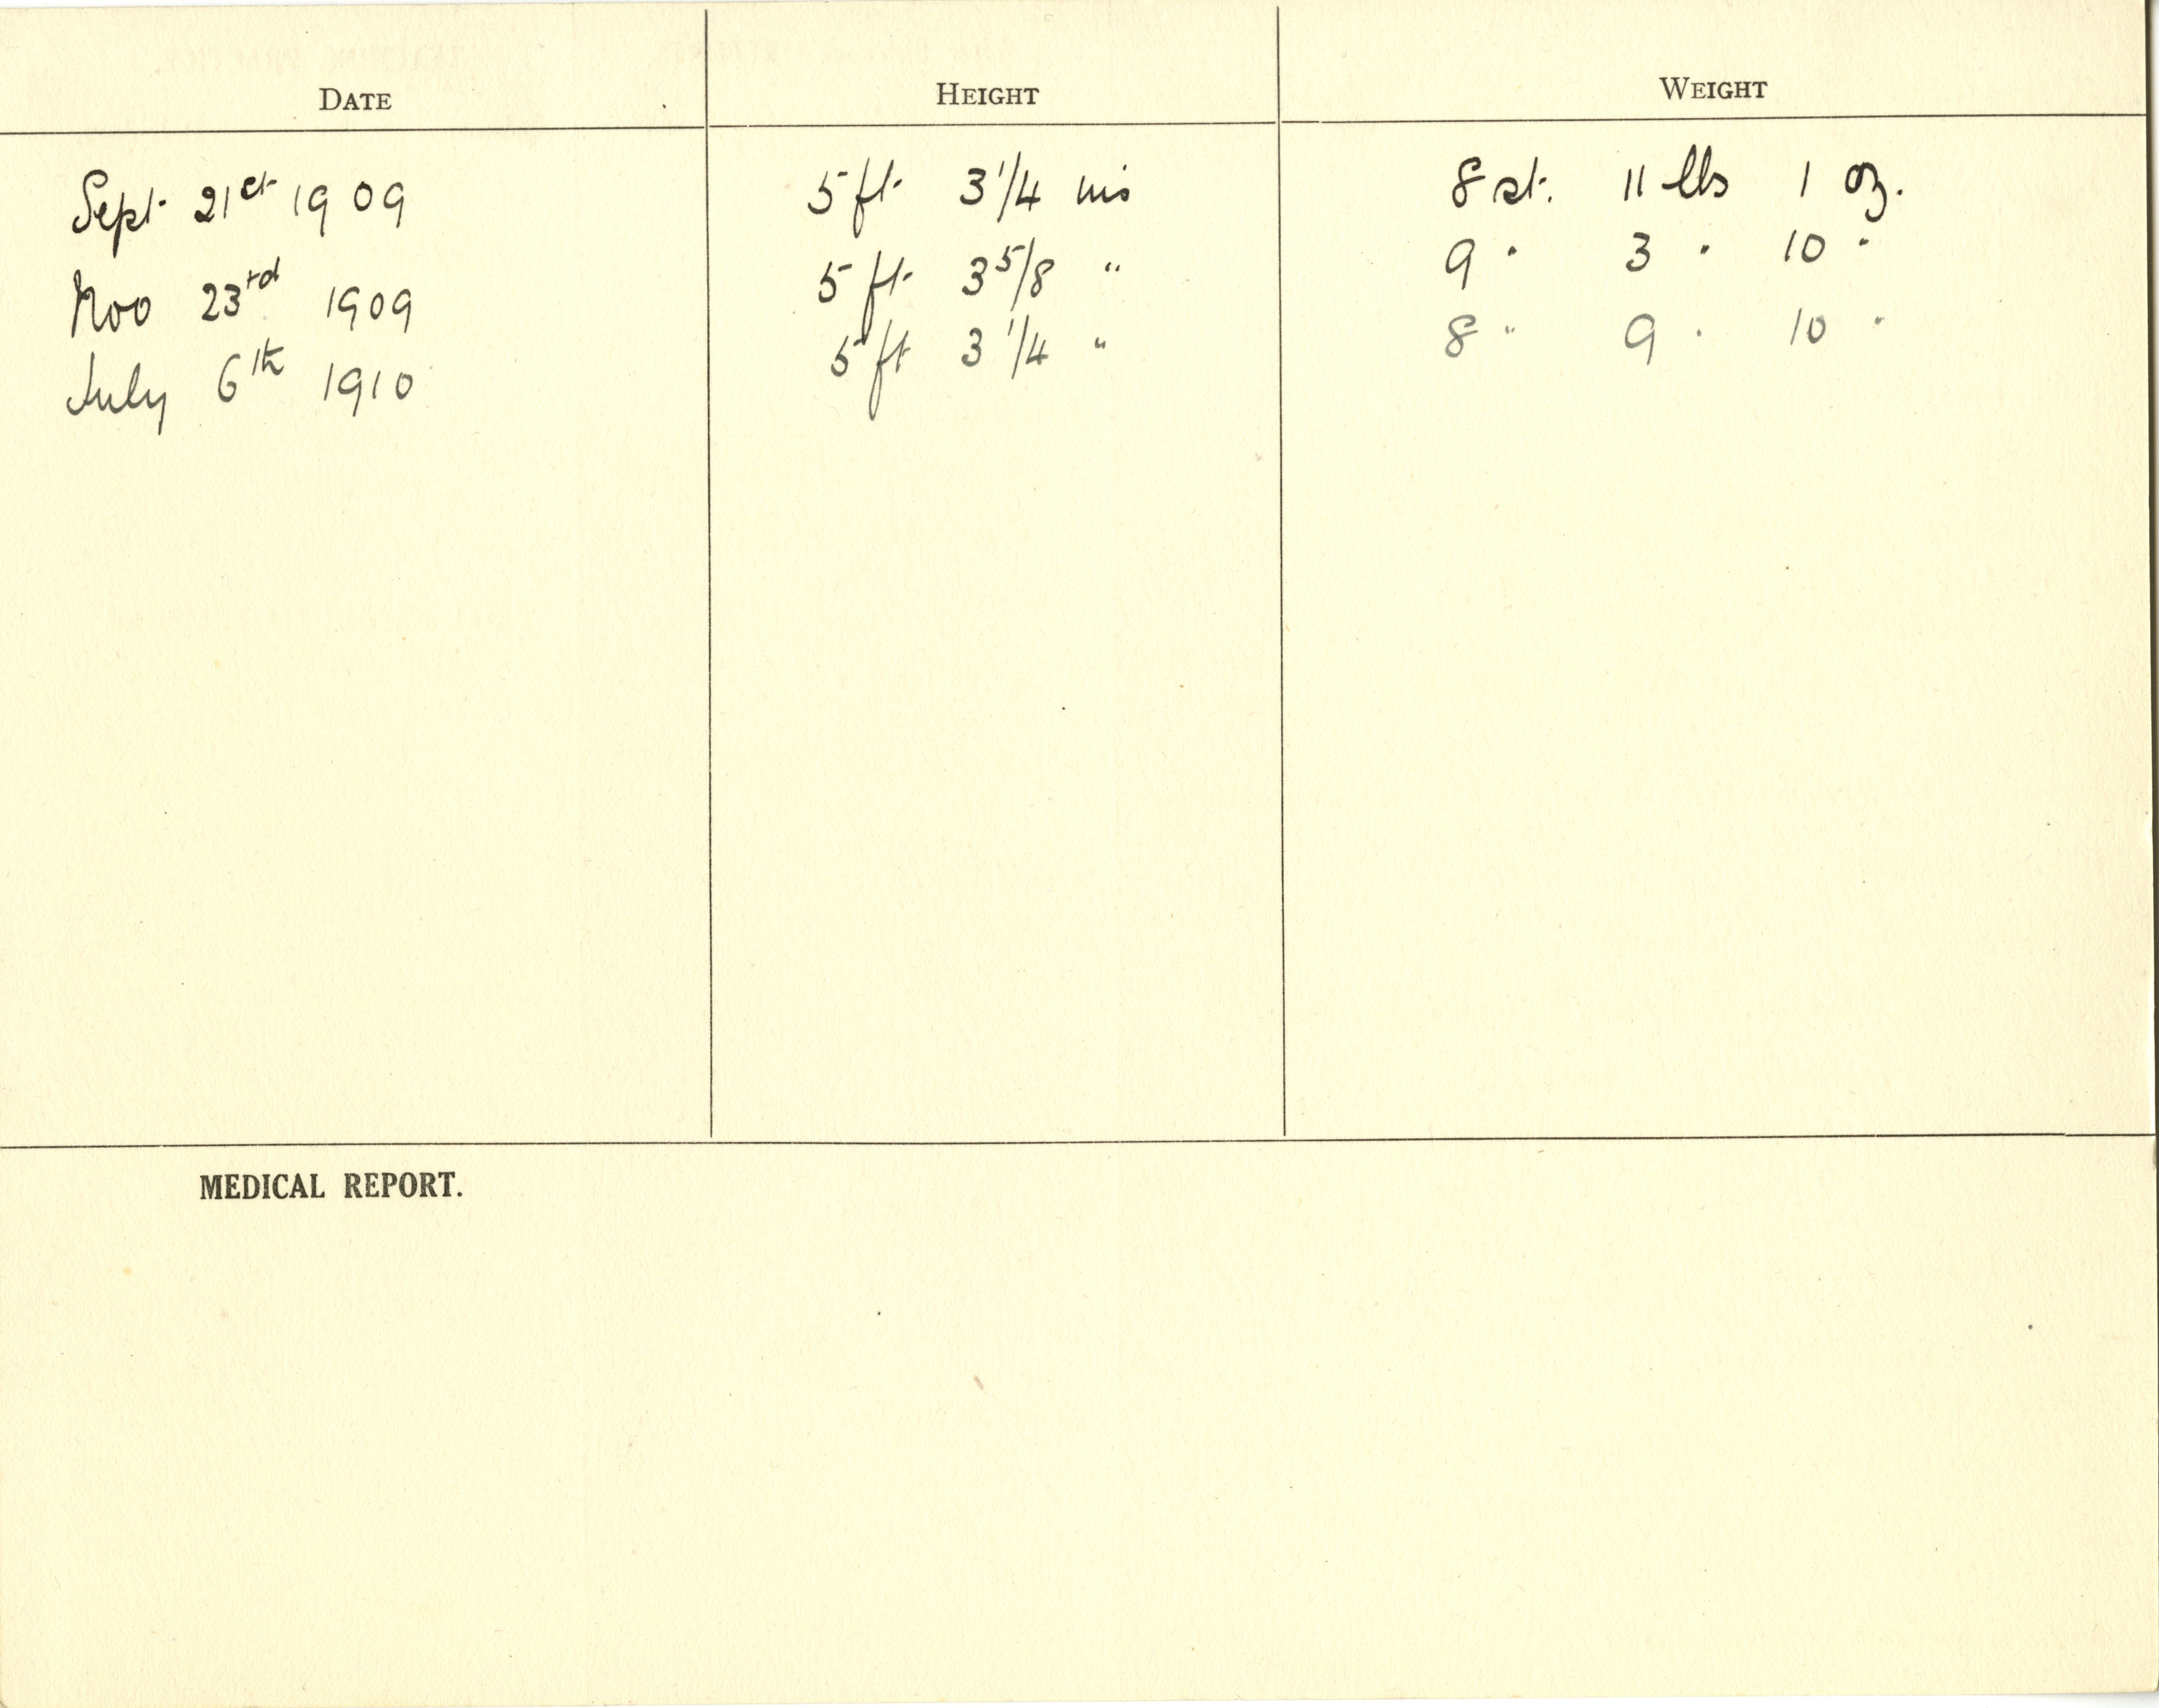 DATE HEIGHT WEIGHT
Sept. 21st 1909 5 ft. 3 1/4 ins 8 st. 11 lbs 1 oz.
Nov 23rd 1909 5 ft. 3 5/8 " 9 " 3 " 10 "
July 6th 1910 5 ft 3 1/4 " 8 " 9 " 10 "
MEDICAL REPORT.